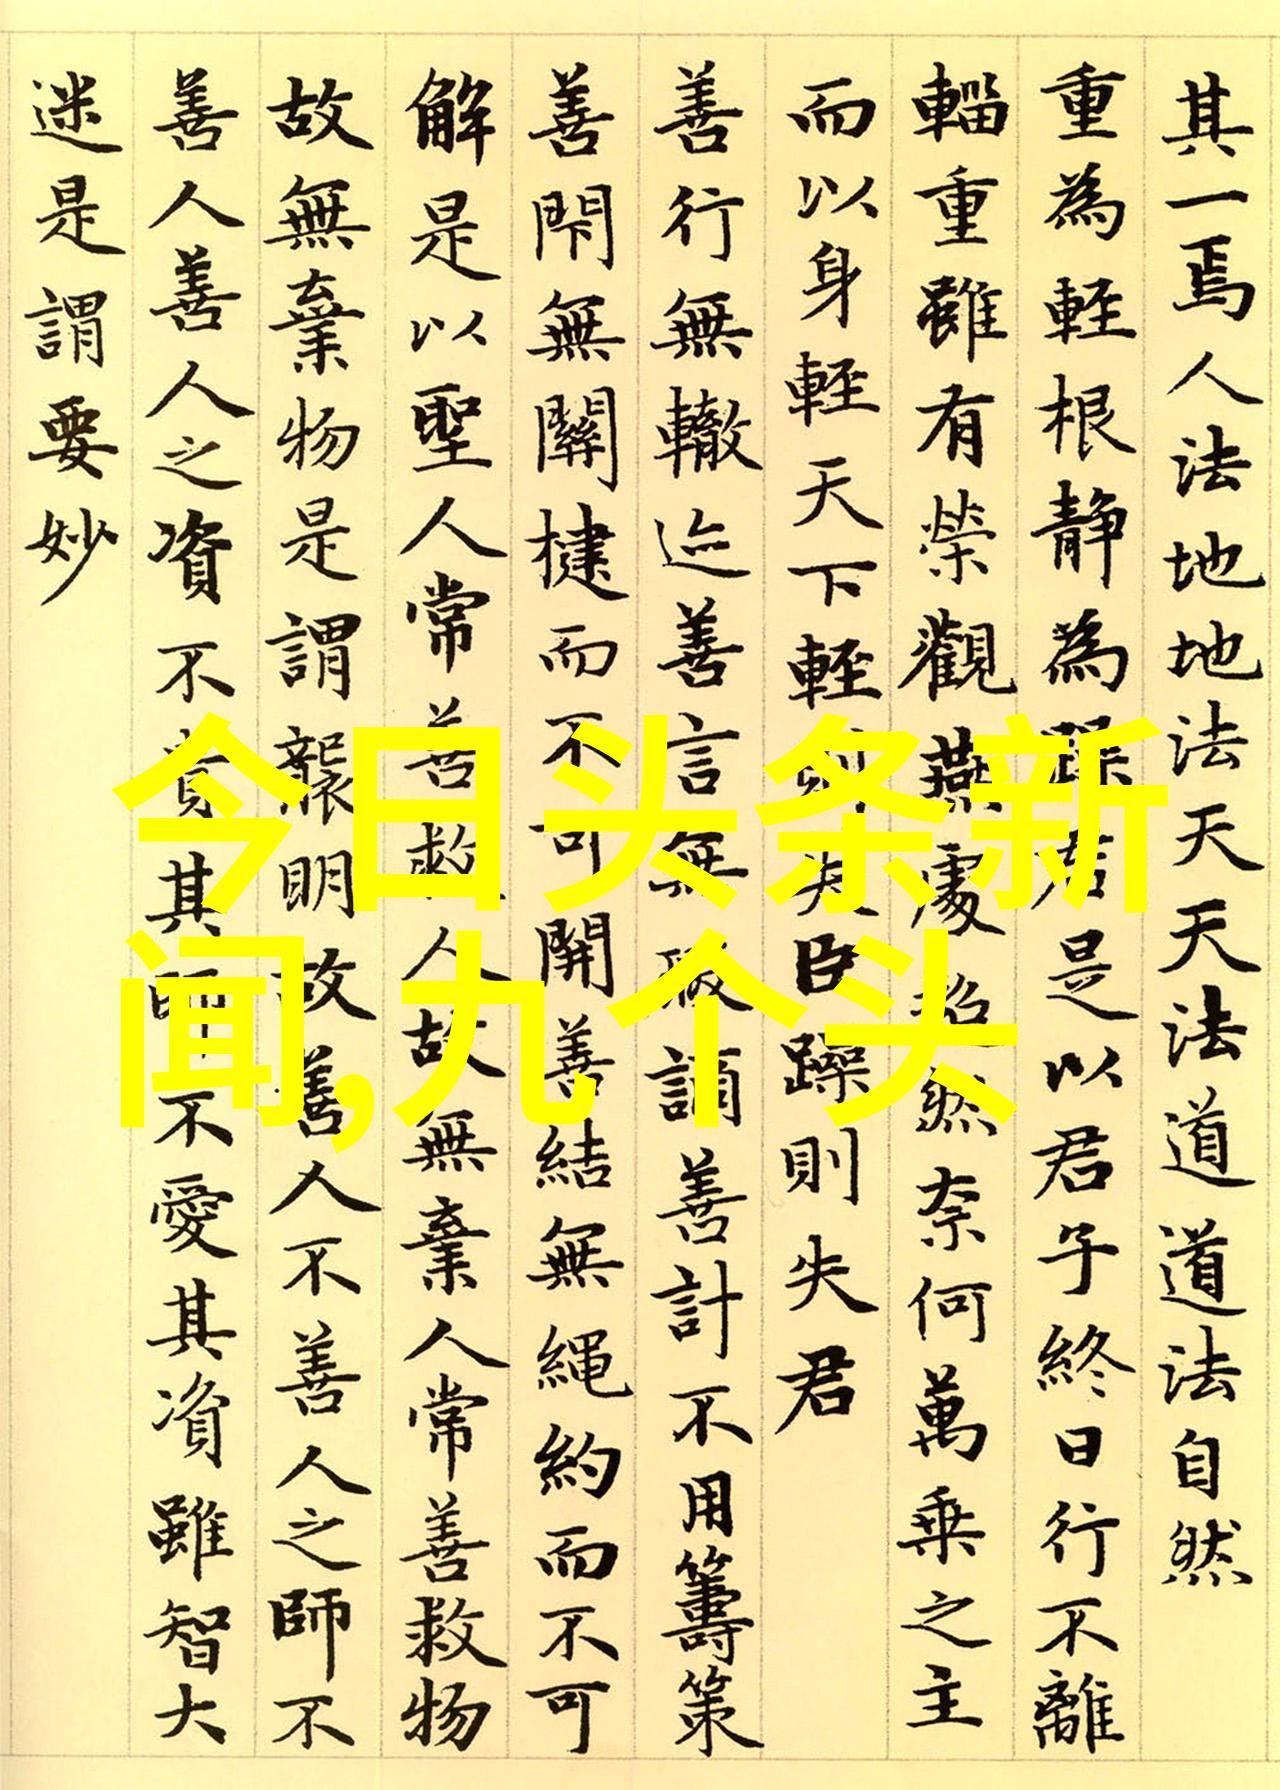 其一焉人法地地法天天法道道法自然
重為輕根静為躁君是以君子終日行不離
輜重雖有榮觀燕處超然奈何萬乘之主
而以身輕天下輕則失臣躁則失君
善行無轍迹善言無瑕謫善計不用籌策
善閇無關楗而不可開善結無繩約而不可
解是以聖人常善救人故無棄人常善救物
故無棄物是謂襲明故善人不善人之師不
善人善人之資不貴其師不愛其資雖智大
迷是謂要妙
今日头条新
闻,九个头